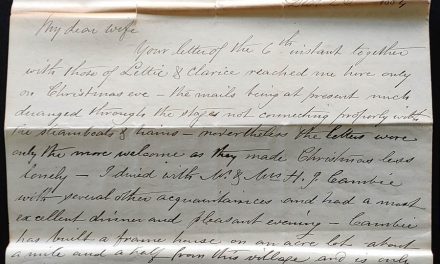 My dear wife
Your letter of the 6th instant together
with those of Lettie & Clarice reached me here only
on Christmas eve – the mails being at present much
deranged through the stages not connecting properly with
the steamboats & trains – nevertheless the letters were
only the more welcome as they made Christmas less
lonely – I dined with Mr. & Mrs H. J. Cambie
with several other acquaintances and had a most
excellent dinner and pleasant evening – Cambie
has built a frame house on an acre lot about
a mile and a half from this village and is only